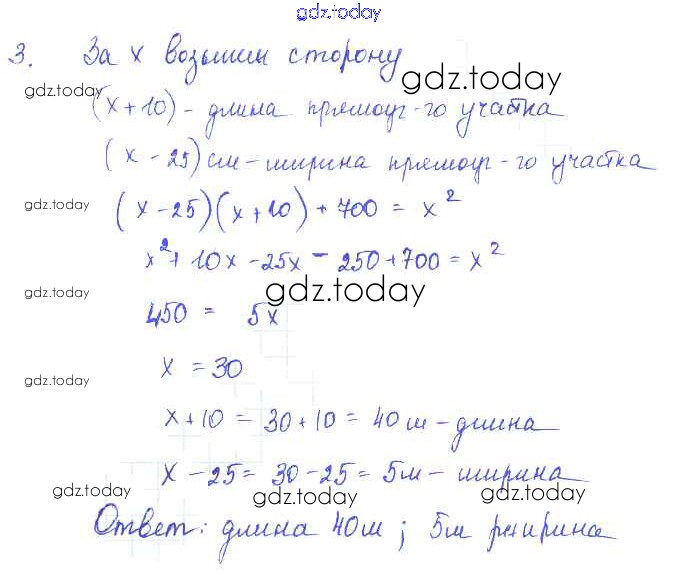 gdz.today
3. За x возьмем сторону
gdz.today gdz.today
(x+10) - длина прямоуг-го участка
(x - 25) см - ширина прямоуг-го участка
gdz.today
(x - 25)(x + 10) + 700 = x²
x² + 10x - 25x - 250 + 700 = x²
gdz.today gdz.today
450 = 5x
x = 30
gdz.today
x + 10 = 30 + 10 = 40м - длина
x - 25 = 30 - 25 = 5м - ширина
gdz.today gdz.today gdz.today
Ответ: длина 40м ; 5м ширина